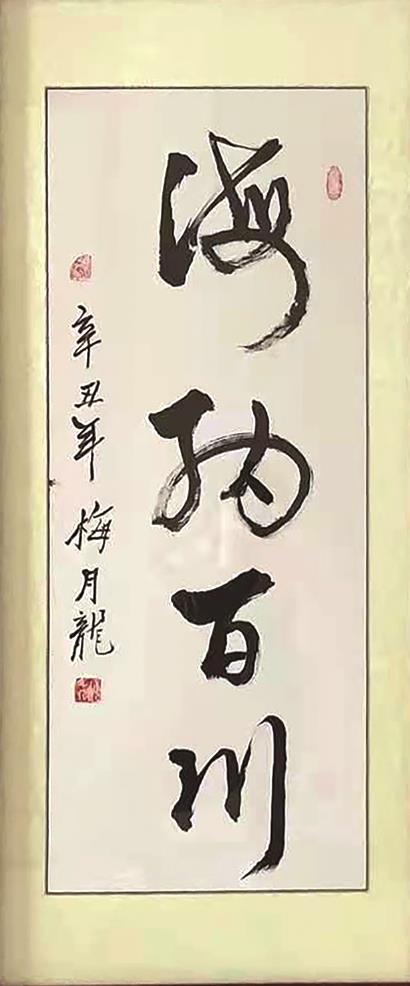 海纳百川
辛丑年 梅月龍